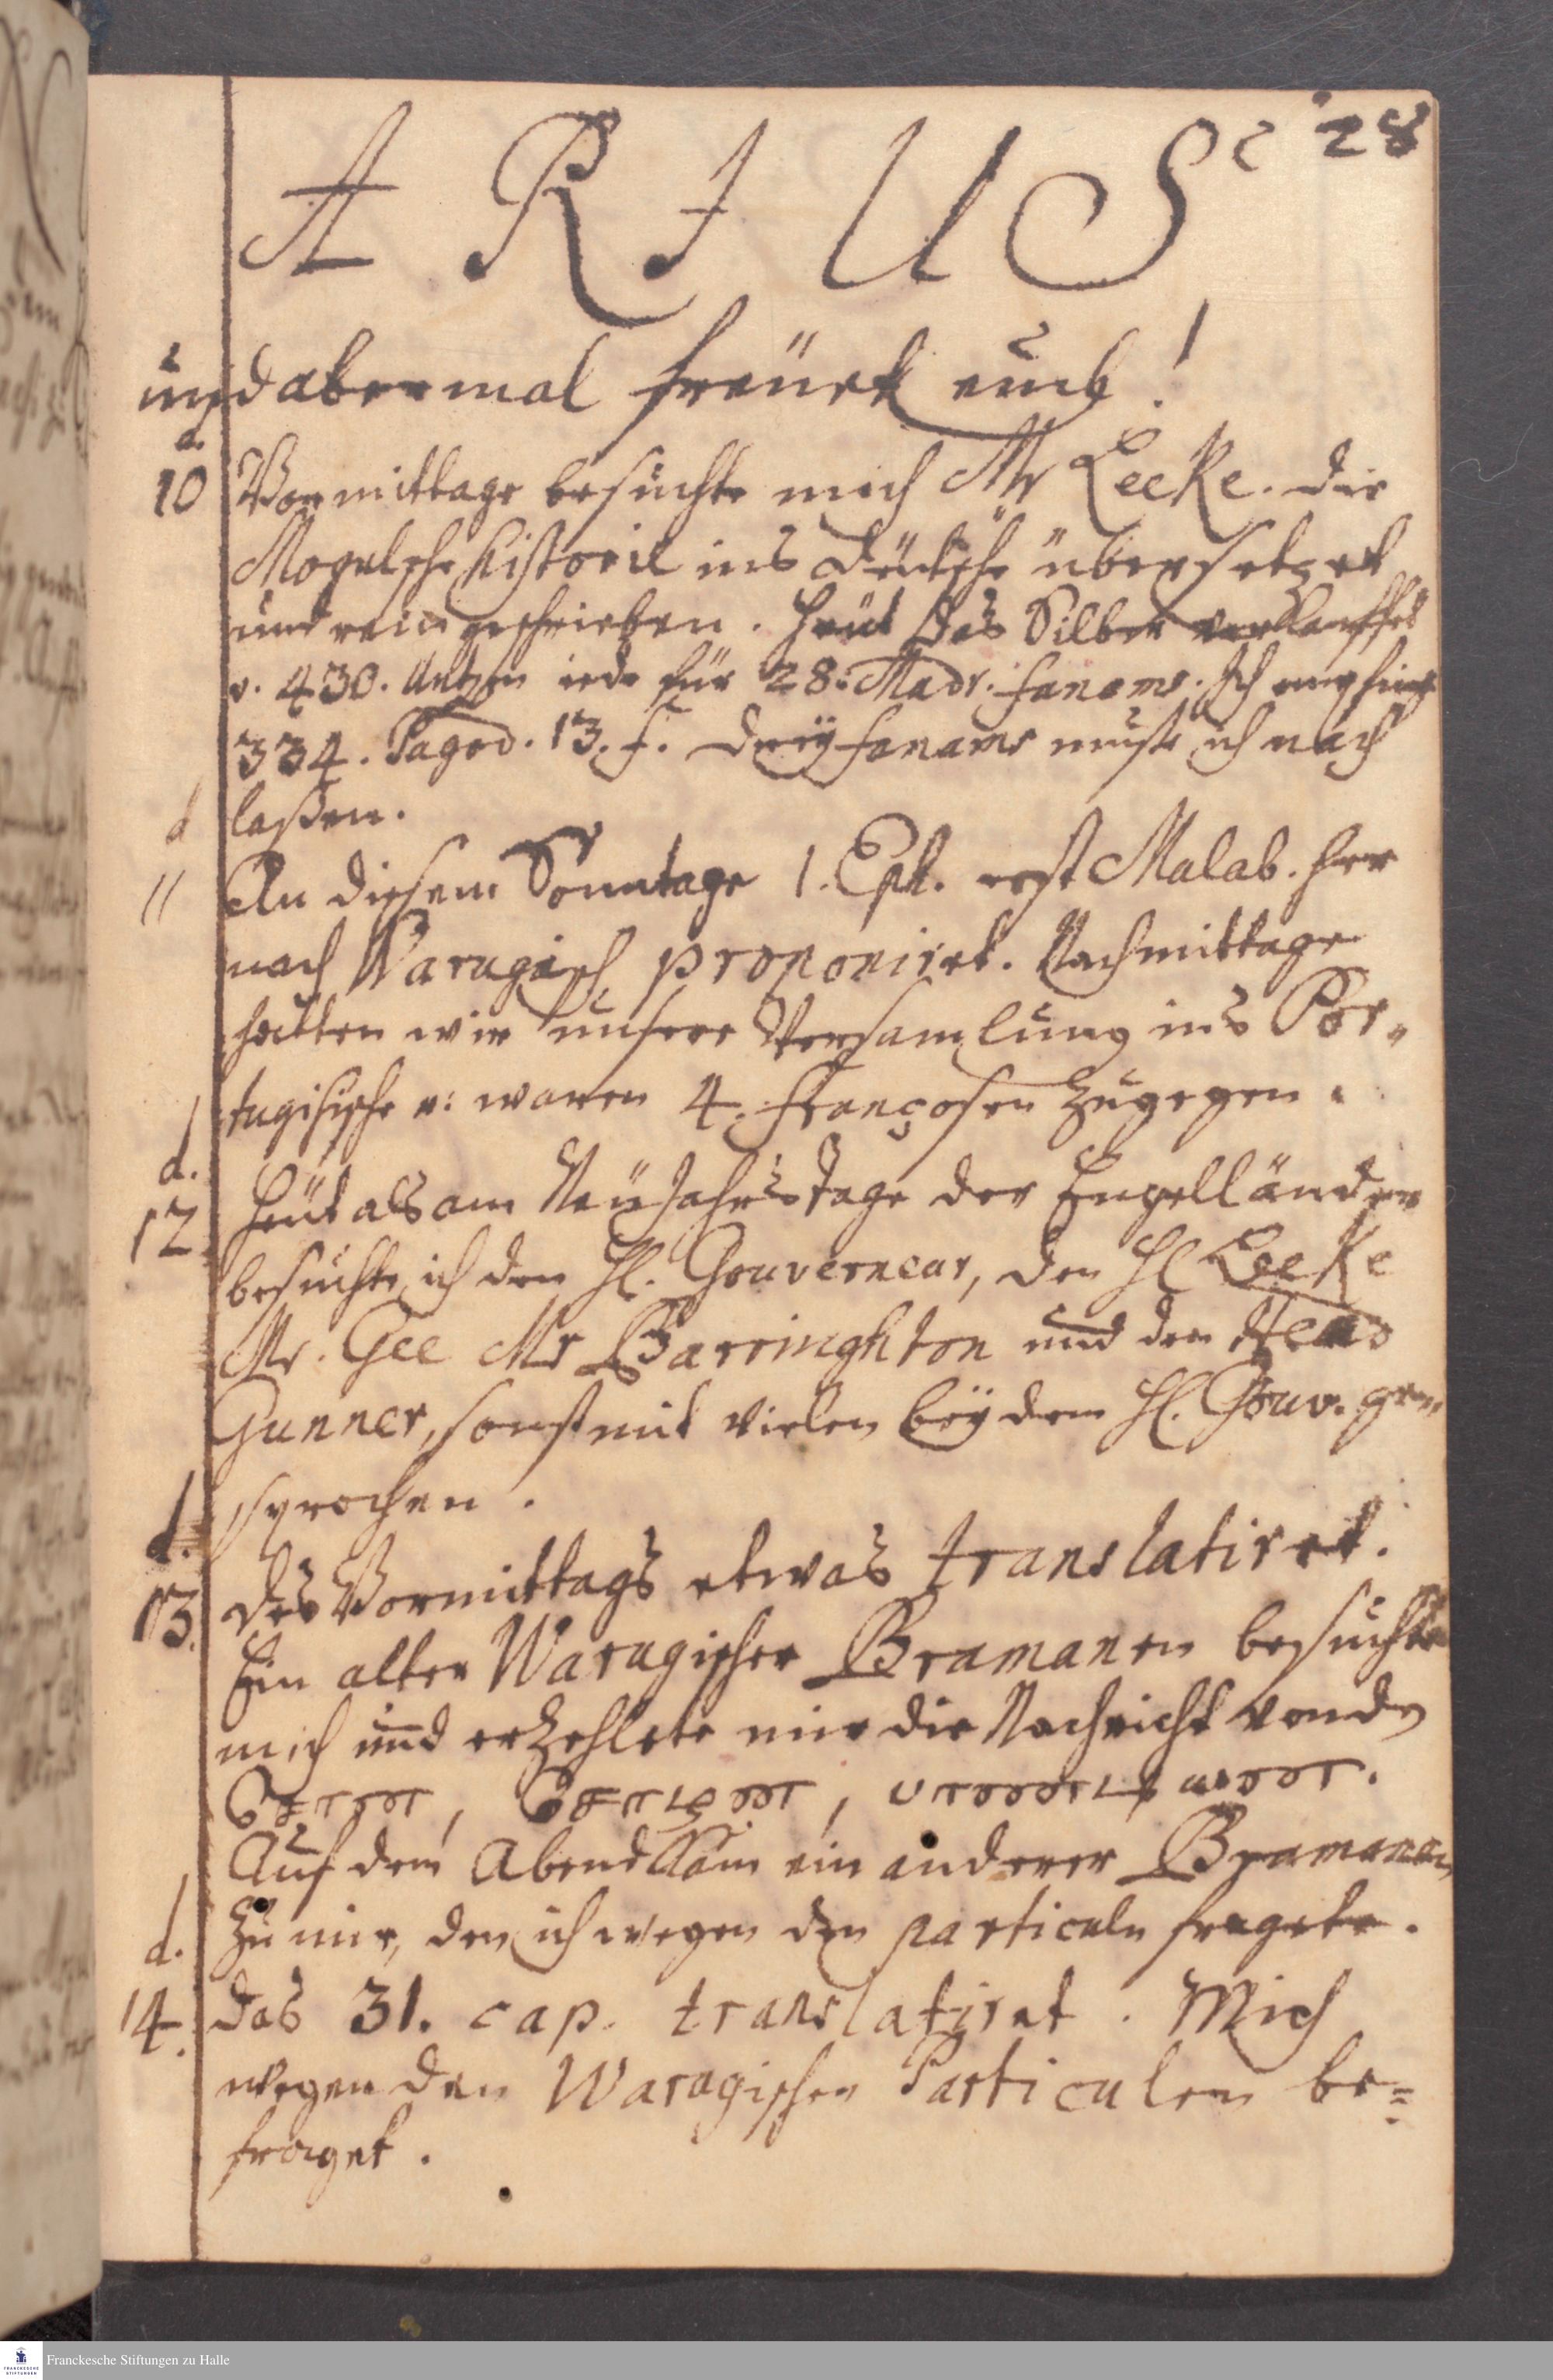 28
A R I U S
und abermal freüet euch!
d.
10 Vormittage besuchte mich Mr Leeke. Die
Mogulsche Historie ins Deutsche übersetzet
und rein geschrieben. Heut das Silber verkauffet
v. 430. Untzen iede für 28. Madr. fanams. Ich empfing
334. Pagod. 13. f. Dreÿ fanams muste ich nach
d laßen.
11 An diesem Sonntage 1. Eph. erst Malab. her
nach Warugisch proponiret. Nachmittage
hatten wir unsere Versamlung ins Por„
tugisische u: waren 4. Françosen zugegen.
d.
12 Heut als am Neü Jahrs Tage der Engelländer
besuchte ich den H. Gouverneur, den H Leeke
Mr. Gee Mr Barringhton und den
Gunner, sonst mit vielen beÿ dem H. Gouv. ge„
d. sprochen.
13. Des Vormittags etwas translatiret.
Ein alter Warugischer Bramanen besuchte
mich und erzehlete mir die Nachricht von den
சேரன், சோழன், பாண்டியன்.
Auf dem Abend kam ein anderer Bramanen
d. zu mir, den ich wegen den particuln fragete.
14. Das 31. cap. translatiret. Mich
wegen den Warugischen Particulen be=
fraget.
Franckesche Stiftungen zu Halle
FRANCKESCHE STIFTUNGEN